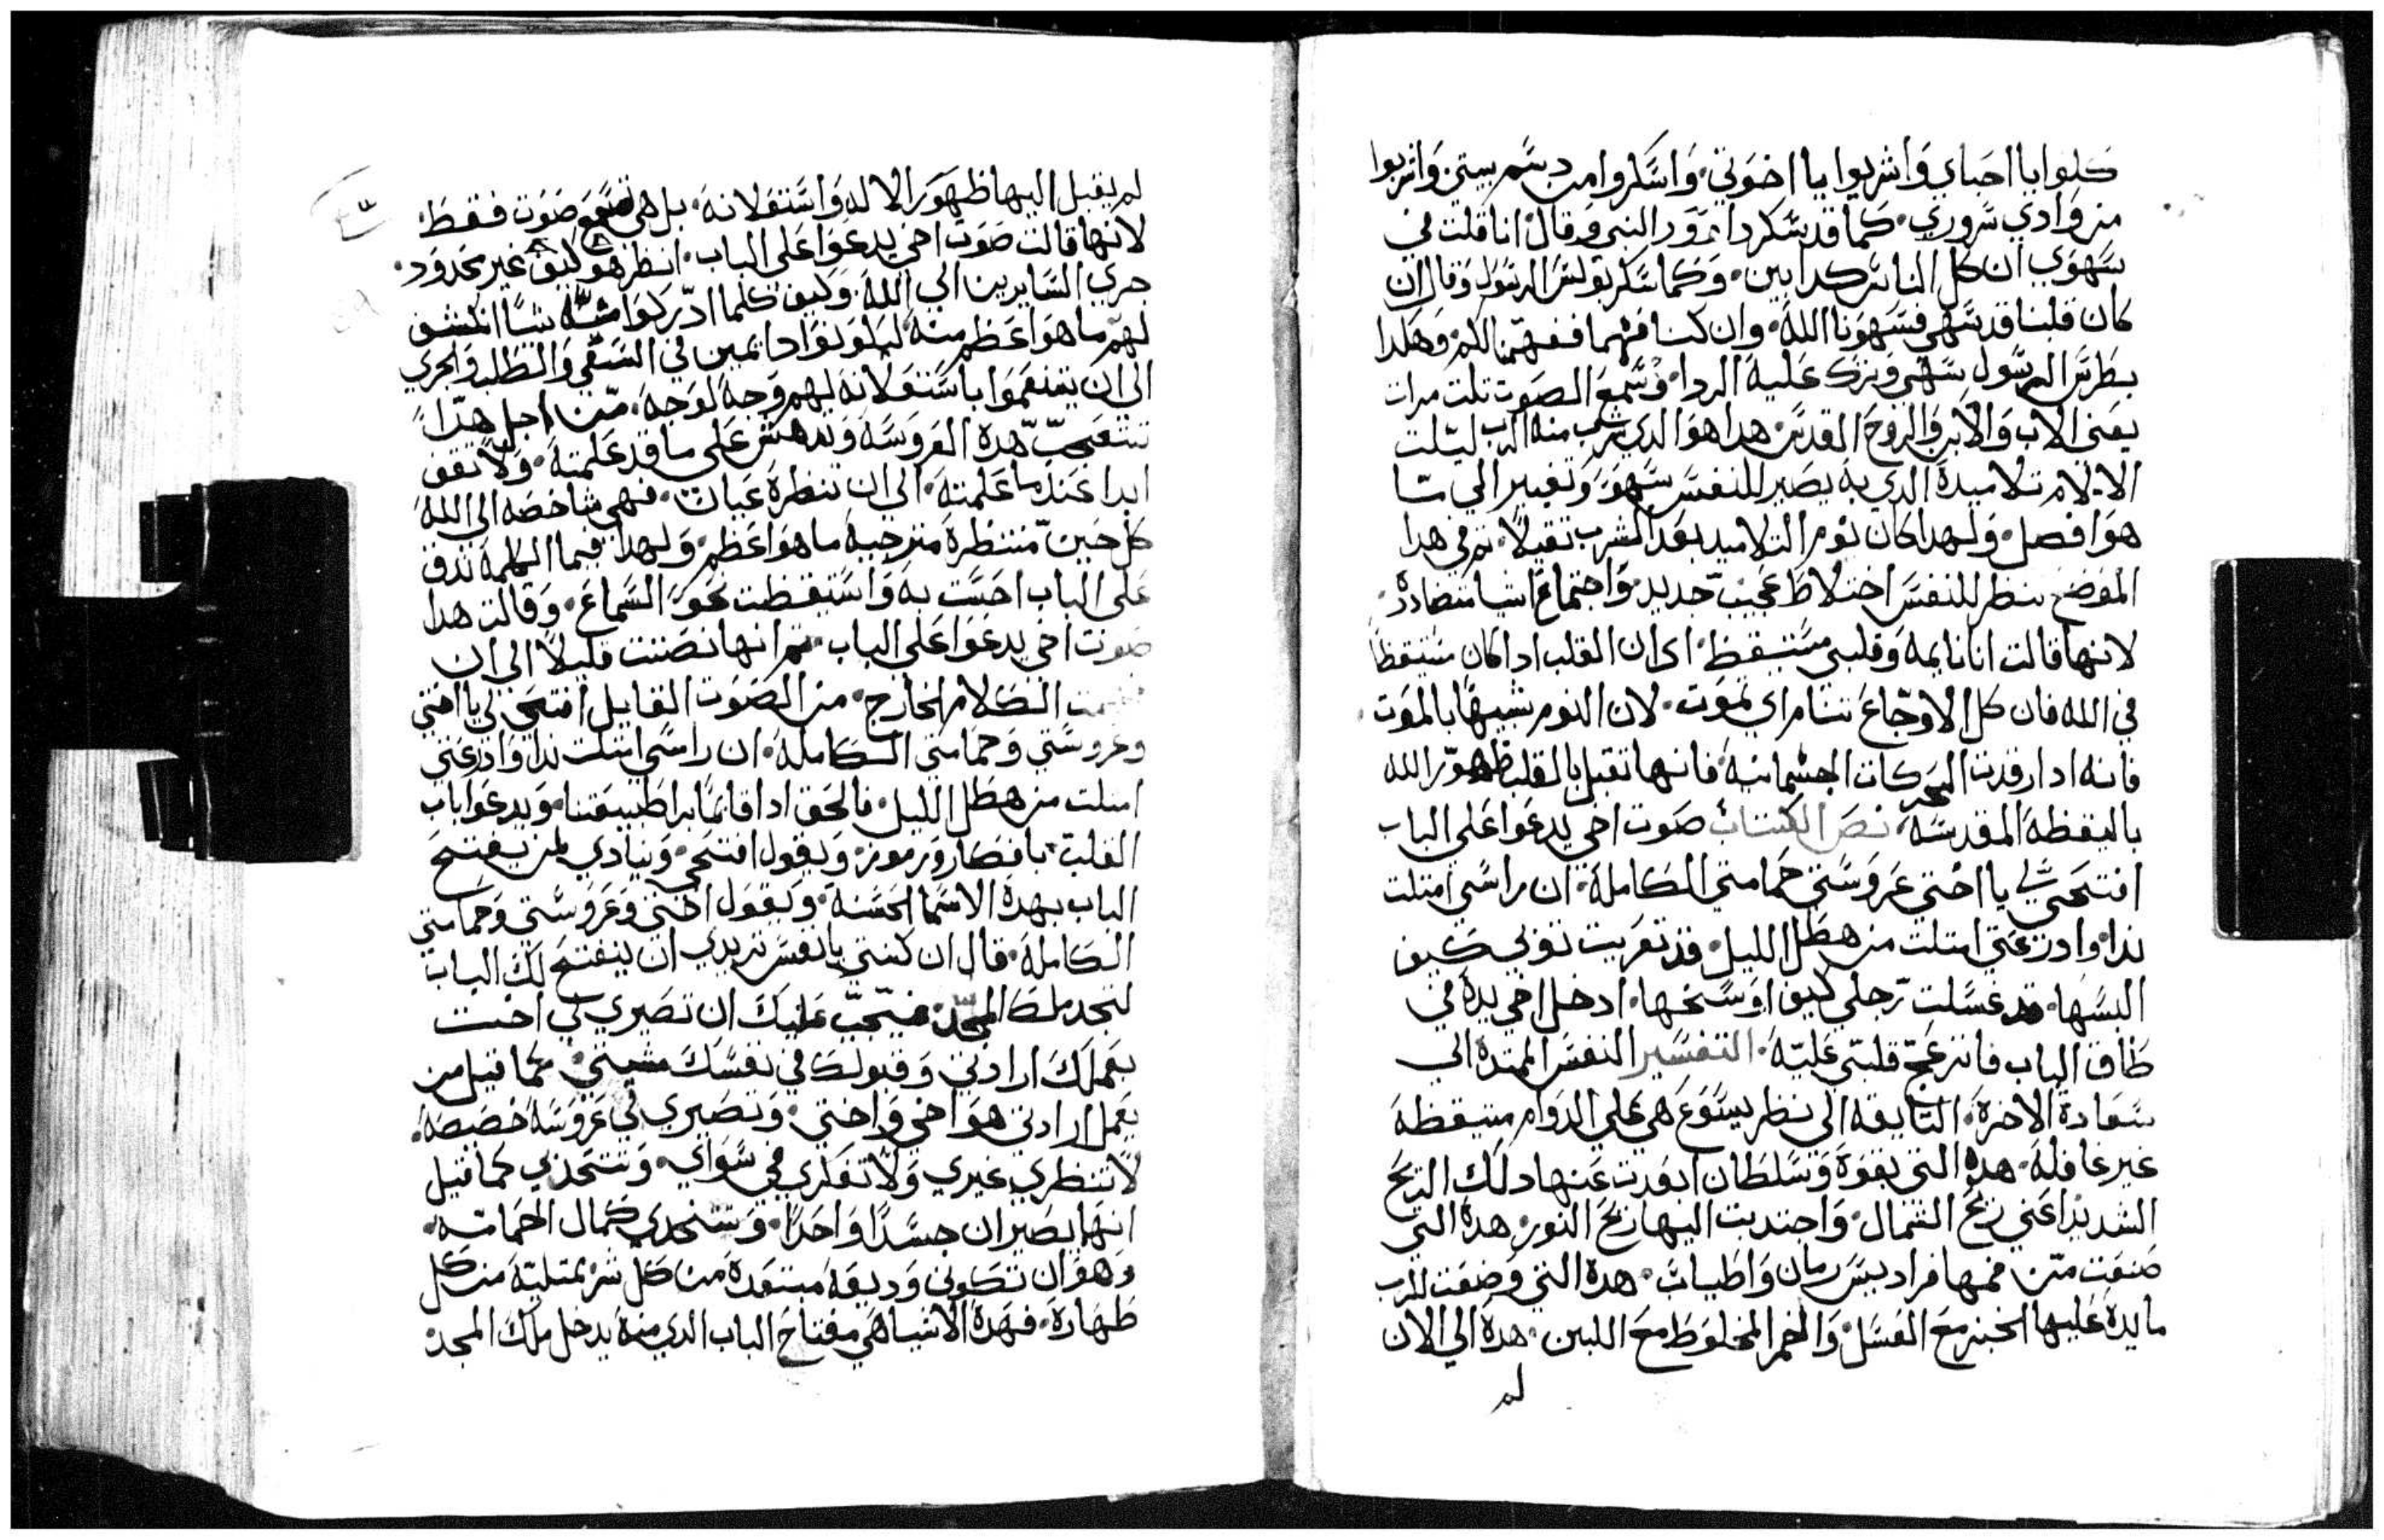 كلوا يا احباي واشربوا يا اخوتي. واسكروا من دسم بيتي واشربوا
من وادي سروري. كما قد سكر داوود النبي وقال انا قلت في
سهوي ان كل الناس كدابين. وكما سكر بولس الرسول وقال ان
كان قلبنا قد سهي فسهونا الله. وان كنا فهما ففهمنا لكم. وهكدا
بطرس الرسول سهي وترك عليه الردا. وسمع الصوت تلت مرات
يعني الاب والابن والروح القدس. هدا هو الدي شرب منه الرب ليلت
الالام تلاميده الدي به يصير للنفس سهو وتغيير الي ما
هو افضل. ولهدا كان نوم التلاميد بعد الشرب تقيلا. تم في هدا
الموضع ننظر للنفس اختلاط عجيب جديد. واجتماع اشيا متضادده.
لانها قالت انا نايمه وقلبي مستيقظ. اي ان القلب ادا كان مستيقظا
في الله فان كل الاوجاع تنام اي تموت. لان النوم شبيها بالموت.
فانه ادا رقدت الحركات الجسمانيه. فانها تقبل بالقلب ظهور الله
باليقظه المقدسه. نص الكتاب صوت اخي يدعوا علي الباب
افتحي لي يا اختي عروستي حمامتي الكامله. ان راسي امتلت
ندا. وادرعتي امتلت من هطل الليل. قد تعريت توبي كيف
البسها. قد غسلت رجلي كيف اوسخها. ادخل اخي يده في
طاق الباب فانزعج قلبي عليه. التفسير النفس الممتده الي
سعادة الاخره. التايقه الي نظر يسوع هي علي الدوام متيقظه
غير غافله. هده التي بقوه وسلطان ابعدت عنها دلك الريح
الشديد اعني ريح الشمال. واجتدبت اليها ريح النور. هده التي
صنعت من فمها فراديس رمان واطياب. هده التي وضعت للرب
مايده عليها الخبز مع العسل. والخمر المخلوط مع اللبن. هده الي الان
لم
لم يقبل اليها ظهور الاله واستعلانه. بل هي تسمع صوت فقط.
لانها قالت صوت اخي يدعوا علي الباب. انظر هو كيف غير محدود.
جري السايرين الي الله. وكيف كلما ادركوا منه شيا انكشف
لهم ما هو اعظم منه. ليكونوا دايمين في السعي والطلب والجري
الي ان يتنعموا باستعلانه لهم وجه لوجه. من اجل هدا
تتعجب هده العروسه وتدهش علي ما قد علمته. ولا تقف
ابدا عند ما علمته. الي ان تنظره عيان. فهي شاخصه الي الله
كل حين منتظره مترجيه ما هو اعظم. ولهدا فيما الكلمه تدق
علي الباب احست به واستيقظت نحو السماع. وقالت هدا
صوت اخي يدعوا علي الباب. تم انها نصتت قليلا الي ان
الكلام الخارج. من الصوت القايل افتحي لي يا اختي
وعروستي وحمامتي الكامله. ان راسي امتلت ندا وادرعتي
امتلت من هطل الليل. فالحق ادا قايما برا طبيعتنا. ويدعوا باب
القلب بافكار ورموز. ويقول افتحي. وينادي لمن يفتح
الباب بهده الاسما الحسنه. ويقول اختي وعروستي وحمامتي
الكامله. قال ان كنتي يا نفس تريدي ان ينفتح لك الباب
لتجد ملك المجد. فيجب عليك ان تصيري لي اخت
بعملك ارادتي وقبولك في نفسك مشيتي. كما قيل من
يعمل ارادتي هو اخي واختي. وتصيري لي عروسه خصيصه.
لا تنظري غيري ولا تفكري في سواي. وتتحدي كما قيل
انهما يصيران جسدا واحدا. وستجدي كمال الحمامه.
وهو ان تكوني وديعه مبتعده من كل شر ممتليه من كل
طهاره. فهده الاشيا هي مفتاح الباب الدي منه يدخل ملك المجد